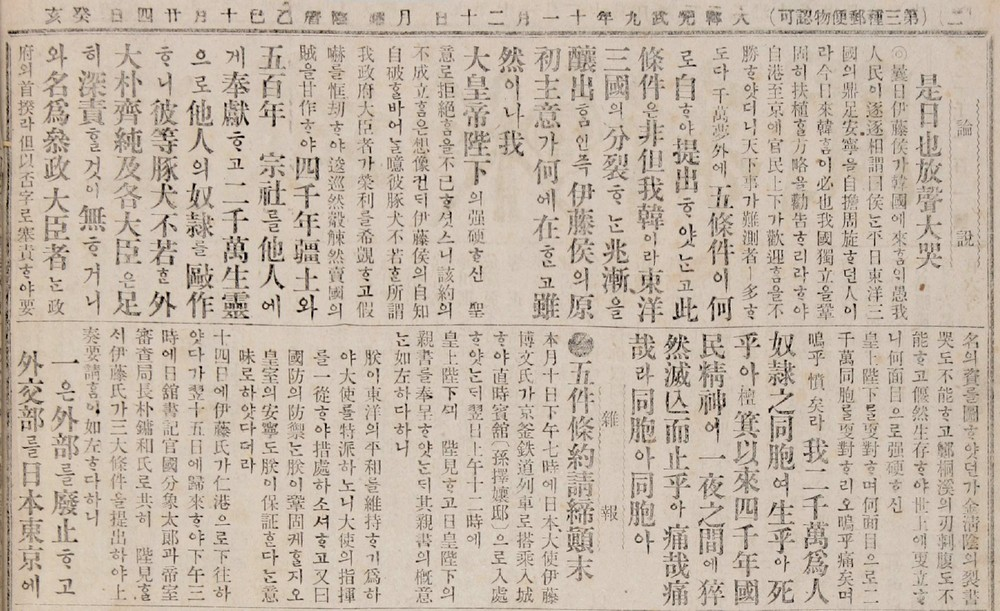 (二) (第三種郵便物認可) 大韓光武九年十一月二十日 月曜 陰曆乙巳十月廿四日癸亥
論說
是日也放聲大哭
◎曩日伊藤侯가韓國에來ᄒᆞᆷᄋᆡ愚我
人民이逐逐相謂曰侯ᄂᆞᆫ平日東洋三
國의鼎足安寧을自擔周旋ᄒᆞ던人이
라今日來韓ᄒᆞᆷ이必也我國獨立을鞏
固히扶植ᄒᆞᆯ方略을勸告ᄒᆞ리라ᄒᆞ야
自港至京에官民上下가歡迎ᄒᆞᆷ을不
勝ᄒᆞ얏더니天下事가難測者ㅣ多ᄒᆞ
도다千萬夢外에五條件이何
로自ᄒᆞ야提出ᄒᆞ얏ᄂᆞᆫ고此
條件은非但我韓이라東洋
三國의分裂ᄒᆞᄂᆞᆫ兆漸을
釀出ᄒᆞᆷ인즉伊藤侯의原
初主意가何에在ᄒᆞᆫ고雖
然이나我
大皇帝陛下의强硬ᄒᆞ신 聖
意로拒絶ᄒᆞᆷ을不已ᄒᆞ셧스니該約의
不成立ᄒᆞᆷ은想像컨ᄃᆡ伊藤侯의自知
自破ᄒᆞᆯ바어ᄂᆞᆯ噫彼豚犬不若ᄒᆞᆫ所謂
我政府大臣者가榮利를希覬ᄒᆞ고假
嚇를恇刼ᄒᆞ야逡巡然觳觫然賣國의
賊을甘作ᄒᆞ야四千年疆土와
五百年 宗社를他人에
게奉獻ᄒᆞ고二千萬生靈
으로他人의奴隷를敺作
ᄒᆞ니彼等豚犬不若ᄒᆞᆫ外
大朴齊純及各大臣은足
히深責ᄒᆞᆯ것이無ᄒᆞ거니
와名爲叅政大臣者ᄂᆞᆫ政
府의首揆라但以否字로塞責ᄒᆞ야要
名의資를圖ᄒᆞ얏던가金淸陰의裂書
哭도不能ᄒᆞ고鄭桐溪의刃剚腹도不
能ᄒᆞ고偃然生存ᄒᆞ야世上에更立ᄒᆞ
니何面目으로强硬ᄒᆞ신
皇上陛下를更對ᄒᆞ며何面目으로二
千萬同胞를更對ᄒᆞ리오嗚乎痛矣며
嗚乎憤矣라我二千萬爲人
奴隷之同胞여生乎아死
乎아檀箕以來四千年國
民精神이一夜之間에猝
然滅亡而止乎아痛哉痛
哉라同胞아同胞아
雜報
●五件條約請締顚末
本月十日下午七時에日本大使伊藤
博文氏가京釜鉄道列車로搭乘入城
ᄒᆞ야直時賓舘(孫擇孃邸)으로入處
ᄒᆞ얏ᄂᆞᆫᄃᆡ翌日上午十二時에
皇上陛下ᄭᅴ 陛見ᄒᆞ고日皇陛下의
親書를奉呈ᄒᆞ얏ᄂᆞᆫᄃᆡ其親書의槪意
ᄂᆞᆫ如左하다하니
朕이東洋의平和를維持하기爲하
야大使를特派하노니大使의指揮
를一從ᄒᆞ야措處하소셔ᄒᆞ고又曰
國防의防禦ᄂᆞᆫ朕이鞏固케ᄒᆞᆯ지오
皇室의安寧도朕이保証ᄒᆞᆫ다ᄂᆞᆫ意
味로하얏다더라
十四日에伊藤氏가仁港으로下往하
얏다가翌十五日에歸來ᄒᆞ야下午三
時에日舘書記官國分象太郞과帝室
審查局長朴鏞和氏로共히 陛見ᄒᆞᆯ
ᄉᆡ伊藤氏가三大條件을提出하야上
奏要請ᄒᆞᆷ이如左ᄒᆞ다하니
一은外部를廢止ᄒᆞ고
外交部를日本東京에